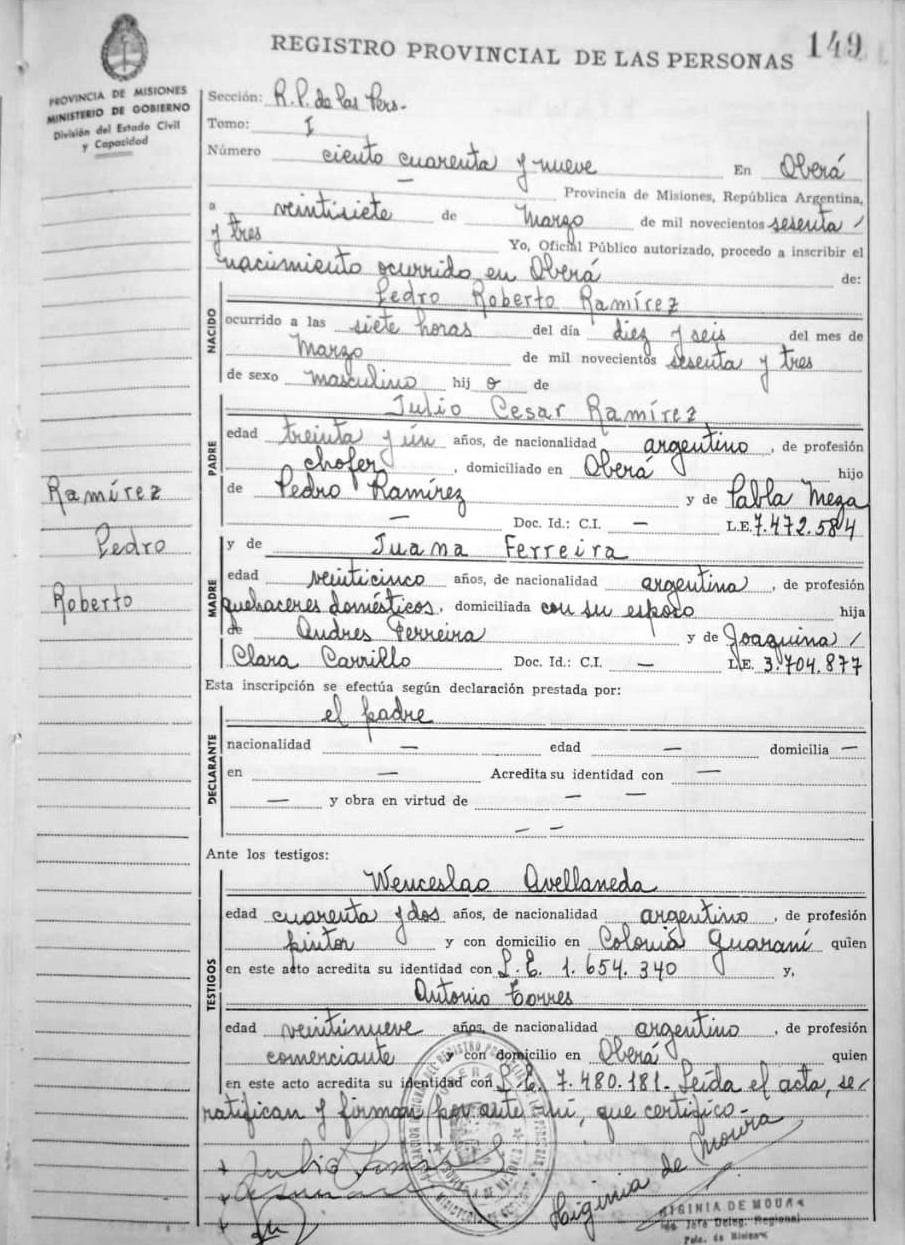 REGISTRO PROVINCIAL DE LAS PERSONAS 149
PROVINCIA DE MISIONES
MINISTERIO DE GOBIERNO
División del Estado Civil
y Capacidad
Sección: R.P. de las Pers.
Tomo: I
Número ciento cuarenta y nueve En Oberá
— Provincia de Misiones, República Argentina,
a veintisiete de Marzo de mil novecientos sesenta /
y tres Yo, Oficial Público autorizado, procedo a inscribir el
nacimiento ocurrido en Oberá de:
NACIDO
Pedro Roberto Ramírez
ocurrido a las siete horas del día diez y seis del mes de
Marzo de mil novecientos sesenta y tres
de sexo masculino hijo de
PADRE
Julio Cesar Ramírez
edad treinta y ún años, de nacionalidad argentino, de profesión
chofer, domiciliado en Oberá hijo
de Pedro Ramírez y de Pabla Meza
— Doc. Id.: C.I. — L.E. 7.472.584
Ramírez
Pedro
Roberto
MADRE
y de Juana Ferreira
edad veinticinco años, de nacionalidad argentina, de profesión
quehaceres domésticos, domiciliada con su esposo hija
de Andres Ferreira y de Joaquina /
Clara Carrillo Doc. Id.: C.I. — L.E. 3.704.877
Esta inscripción se efectúa según declaración prestada por:
DECLARANTE
el padre
nacionalidad — edad — domicilia —
en — Acredita su identidad con —
— y obra en virtud de — —
— —
Ante los testigos:
TESTIGOS
Wenceslao Avellaneda
edad cuarenta y dos años, de nacionalidad argentino, de profesión
pintor y con domicilio en Colonia Guaraní quien
en este acto acredita su identidad con L.E. 1.654.340 y,
Antonio Torres
edad veintinueve años, de nacionalidad argentino, de profesión
comerciante y con domicilio en Oberá quien
en este acto acredita su identidad con L.E. 7.480.181. Leída el acta, se/
ratifican y firman por ante mí, que certifico.-
Higinia de Moura
HIGINIA DE MOURA
Jefe Deleg. Regional